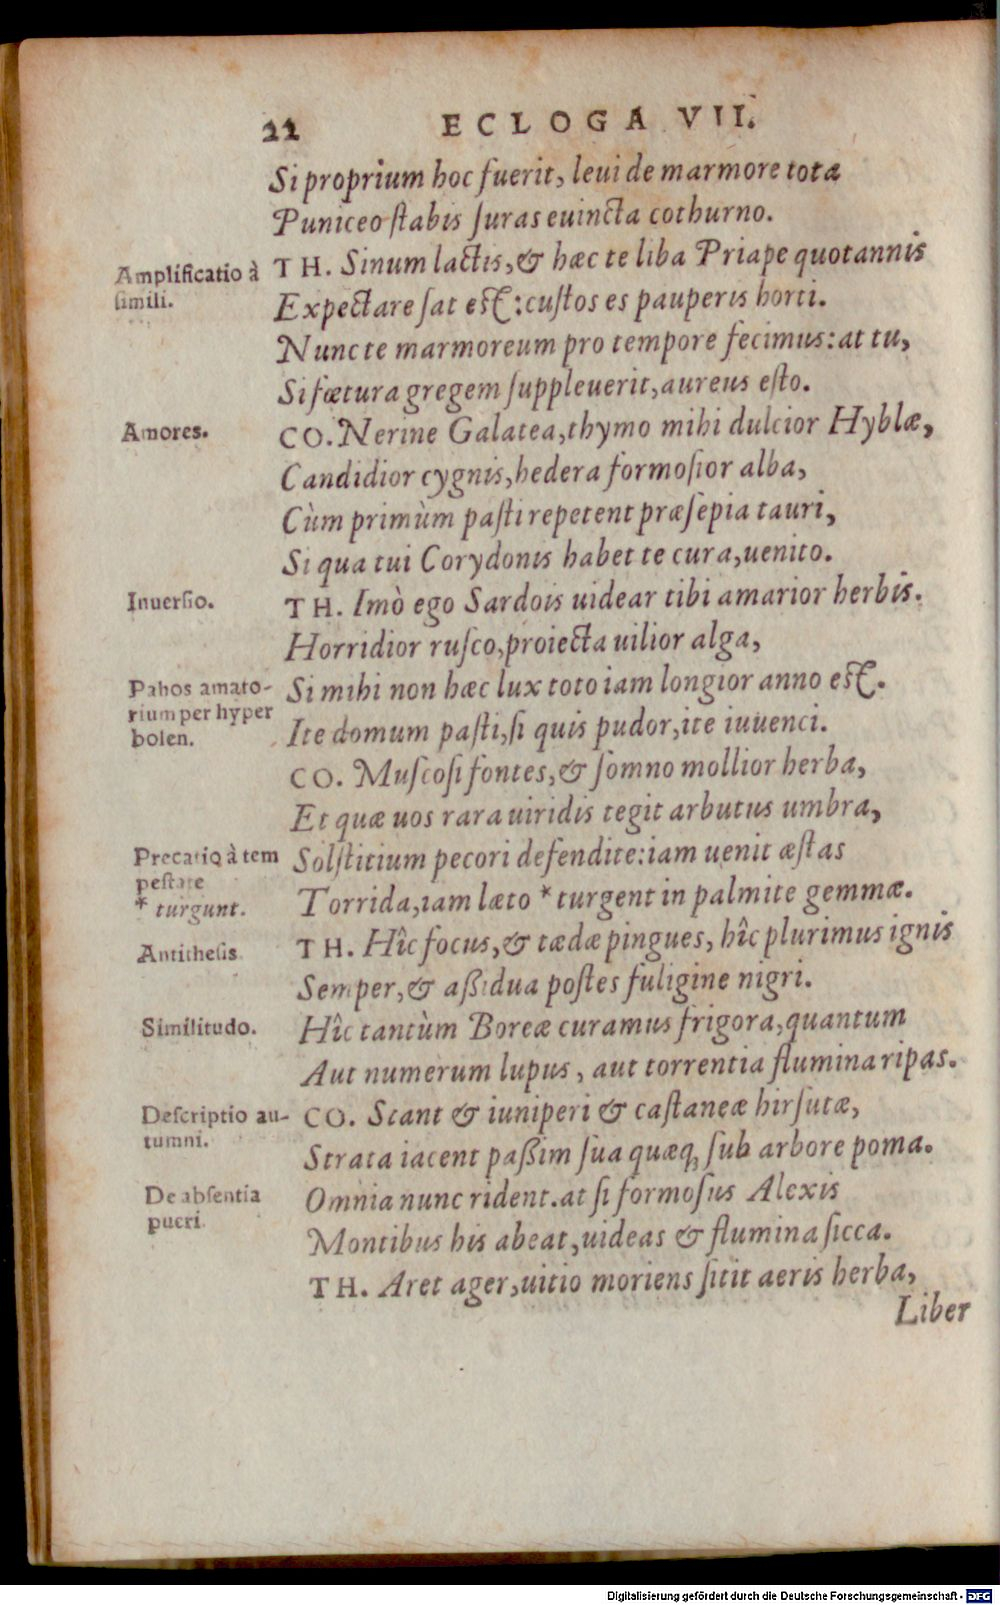 22 ECLOGA VII.
Si proprium hoc fuerit, leui de marmore tota
Puniceo stabis suras euincta cothurno.
Amplificatio à
simili.
TH. Sinum lactis, & hæc te liba Priape quotannis
Expectare sat est: custos es pauperis horti.
Nunc te marmoreum pro tempore fecimus: at tu,
Si fœtura gregem suppleuerit, aureus esto.
Amores.
CO. Nerine Galatea, thymo mihi dulcior Hyblæ,
Candidior cygnis, hedera formosior alba,
Cùm primùm pasti repetent præsepia tauri,
Si qua tui Corydonis habet te cura, uenito.
Inuersio.
TH. Imò ego Sardois uidear tibi amarior herbis.
Horridior rusco, proiecta uilior alga,
Pahos amato-
rium per hyper
bolen.
Si mihi non hæc lux toto iam longior anno est.
Ite domum pasti, si quis pudor, ite iuuenci.
CO. Muscosi fontes, & somno mollior herba,
Et quæ uos rara uiridis tegit arbutus umbra,
Precatio à tem
pestate
* turgunt.
Solstitium pecori defendite: iam uenit æstas
Torrida, iam læto * turgent in palmite gemmæ.
Antithesis
TH. Hîc focus, & tædæ pingues, hîc plurimus ignis
Semper, & aßidua postes fuligine nigri.
Similitudo.
Hîc tantùm Boreæ curamus frigora, quantum
Aut numerum lupus, aut torrentia flumina ripas.
Descriptio au-
tumni.
CO. Stant & iuniperi & castaneæ hirsutæ,
Strata iacent paßim sua quæq; sub arbore poma.
De absentia
pueri.
Omnia nunc rident. at si formosus Alexis
Montibus his abeat, uideas & flumina sicca.
TH. Aret ager, uitio moriens sitit aeris herba,
Liber
Digitalisierung gefördert durch die Deutsche Forschungsgemeinschaft - DFG